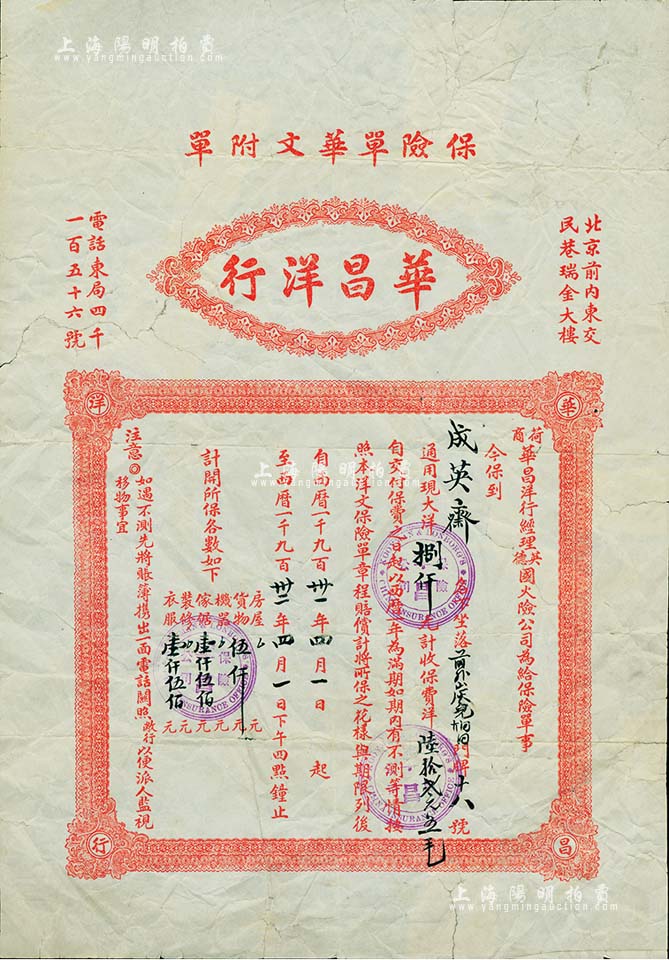 上海陽明拍賣
www.yangmingauction.com
保險單華文附單
華昌洋行
北京前內東交
民巷瑞金大樓
電話東局四千
一百五十六號
華
昌
洋
行
荷商華昌洋行經理英德國火險公司為給保險單事
今保到
成英齋 坐落 門牌十八號
通用現大洋捌仟元計收保費洋陸拾貳元五毛
自交付保費之日起以西曆年為滿期如期內有不測等情按
照本洋文保險單章程賠償計將所保之花樣與期限列後
自西曆一千九百卅一年四月一日起
至西曆一千九百卅二年四月一日下午四點鐘止
計開所保各數如下
房屋 元
貨物伍仟元
機器 元
傢俱壹仟伍佰元
裝修 元
衣服壹仟伍佰元
注意◎如遇不測先將賬簿携出一面電話關照敝行以便派人監視
移物事宜
上海陽明拍賣
www.yangmingauction.com
上海陽明拍賣
www.yangmingauction.com